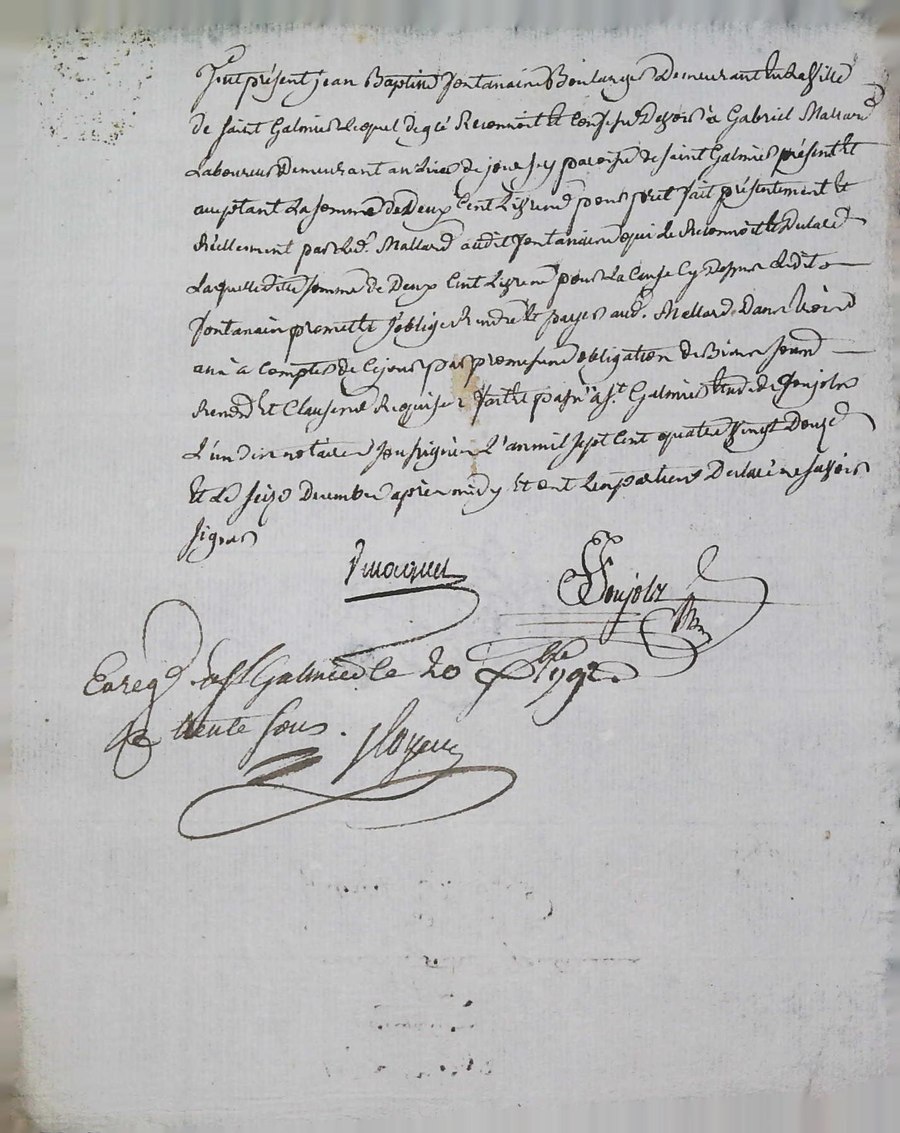 fut présent jean Baptiste fontanain Boulanger demeurant en la ville
de saint Galmier lequel de gré Reconnoit et confesse devoir à Gabriel Mallard
Laboureur demeurant au lieu de paroisse de saint Galmier présent et
acceptant la somme de deux cent livres pour pret fait présentement et
réellement par led. Mallard audit fontanain qui le Reconnoit et declare
Laquelle dite somme de deux cent livres pour la cause cy dessus ledit
fontanain promet et s'oblige rendre et payer aud. Mallard dans trois
ans à compter de ce jour par promesse obligation de Biens
Renond et Clauses Requises fait et passé à st. Galmier etude de Soujols
L'un des notaires soussignés L'an mil sept cent quatre vingt douze
et le seize decembre après midy et ont les parties declaré ne savoir
signer
Soujols
Enreg à st Galmier le 20 Xbre 1792
trente sous.